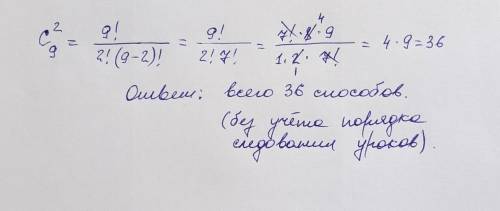 C₉² = 9! / 2!(9-2)! = 9! / 2! 7! = 7! · 8 · 9 / 1 · 2 · 7! = 4 · 9 = 36
Ответ: всего 36 способов.
(без учёта порядка
следования уроков).